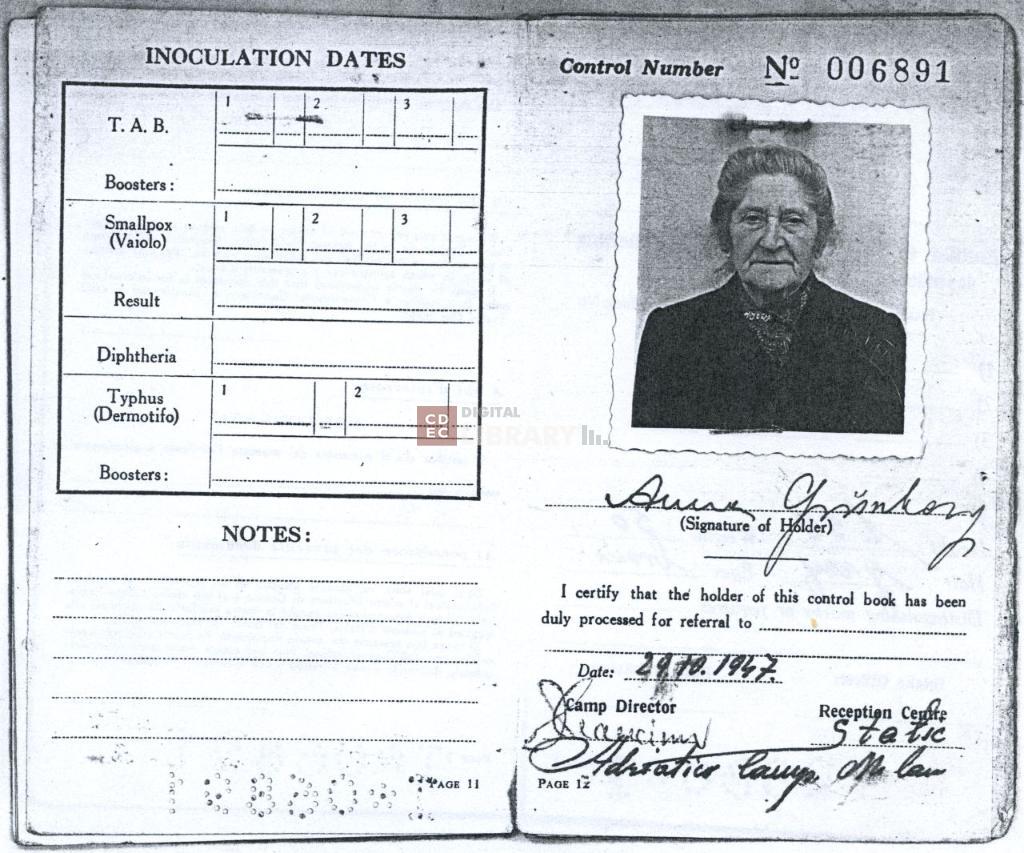 INOCULATION DATES
T. A. B.
1 2 3
Boosters:
Smallpox
(Vaiolo)
1 2 3
Result
Diphtheria
Typhus
(Dermotifo)
1 2
Boosters:
NOTES:
PAGE 11
Control Number Nº 006891
Anna Grünberg
(Signature of Holder)
I certify that the holder of this control book has been
duly processed for referral to
Date: 29.10.1947.
Camp Director
Reception Centre
Static
Adriatico Camp. Milan
PAGE 12
CDEC DIGITAL
LIBRARY